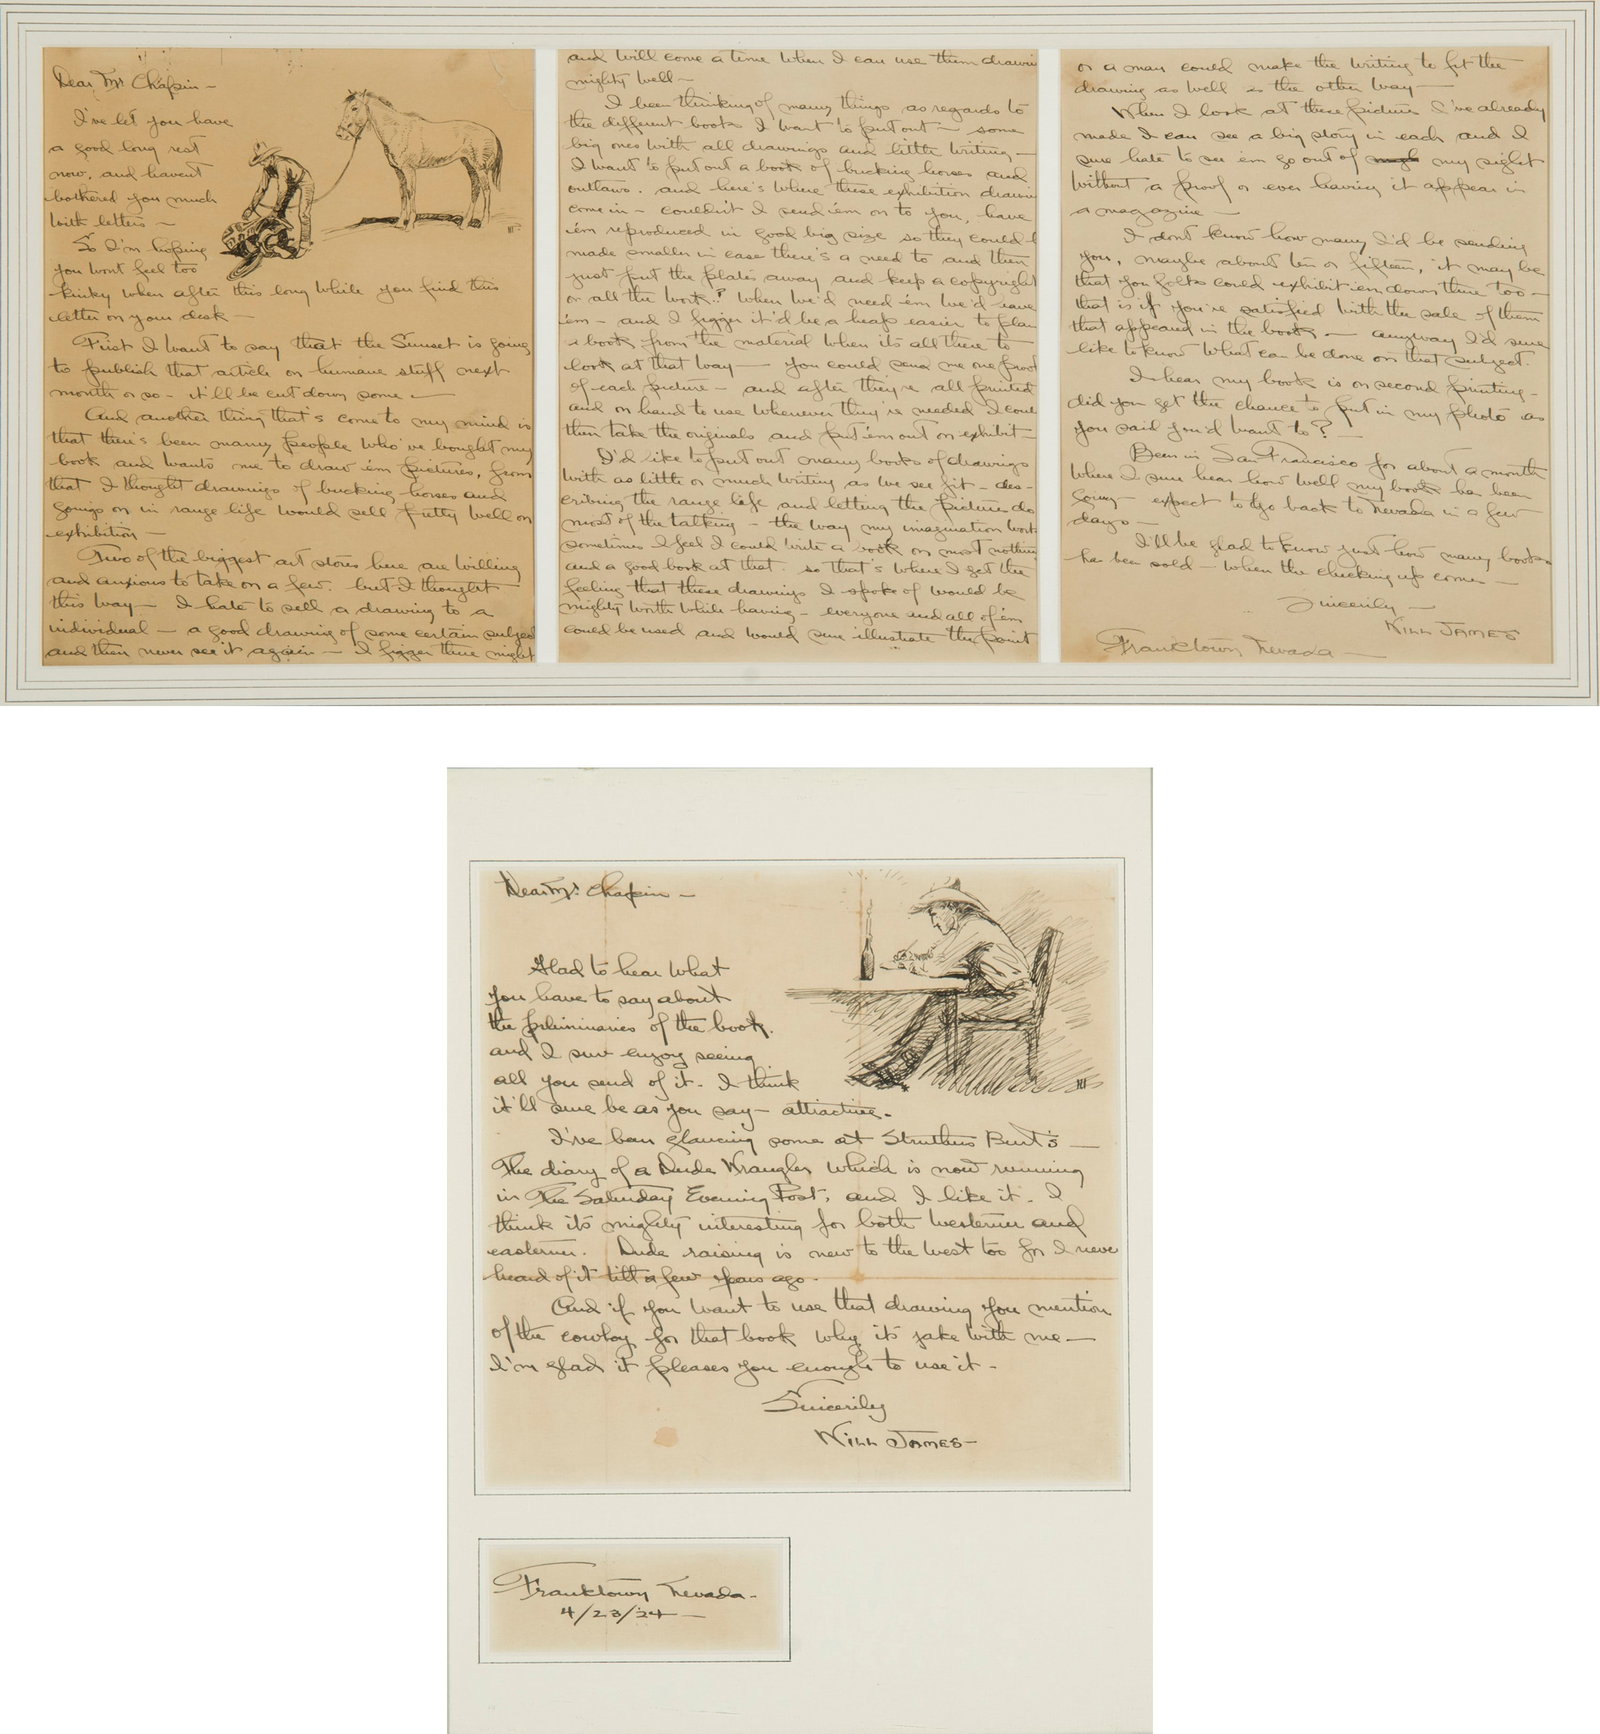 Dear Mr Chapin —
I've let you have
a good long rest
now, and havent
bothered you much
with letters —
So I'm hoping
you wont feel too
kinky when after this long while you find this
letter on your desk —
First I want to say that the Sunset is going
to publish that article on humane stuff next
month or so — it'll be cut down some —
And another thing that's come to my mind is
that there's been many people who've bought my
book and wants me to draw em pictures, from
that I thought drawings of bucking horses and
goings on in range life would sell pretty well on
exhibition —
Two of the biggest art stores here are willing
and anxious to take on a few. but I thought
this way — I hate to sell a drawing to a
individual — a good drawing of some certain subject
and then never see it again — I figger there might
and will come a time when I can use them drawin
mighty well —
I been thinking of many things as regards to
the different books I want to put out — some
big ones with all drawings and little writing —
I want to put out a book of bucking horses and
outlaws. and here's where these exhibition drawin
come in — couldn't I send em on to you, have
em reproduced in good big size so they could b
made smaller in case there's a need to and then
just put the plates away and keep a copyright
on all the work? When we'd need em we'd have
em — and I figger it'd be a heap easier to plan
a book from the material when its all there to
look at that way — you could send me one proof
of each picture — and after they're all printed
and on hand to use whenever they're needed I coul
then take the originals and put em out on exhibit —
I'd like to put out many books of drawings
with as little or much writing as we see fit — des-
cribing the range life and letting the pictures do
most of the talking — the way my imagination work
sometimes I feel I could write a book on most nothin
and a good book at that. so that's where I get the
feeling that these drawings I spoke of would be
mighty worth while having — everyone and all of em
could be used and would sure illustrate the point
or a man could make the writing to fit the
drawing as well as the other way —
When I look at these pictures I've already
made I can see a big story in each and I
sure hate to see em go out of my sight
without a proof or ever having it appear in
a magazine —
I dont know how many I'd be sending
you, maybe about ten or fifteen, it may be
that you folks could exhibit em down there too —
that is if you're satisfied with the sale of them
that appeared in the book — anyway I'd sure
like to know what can be done on that subject.
I hear my book is on second printing —
did you get the chance to put in my photo as
you said you'd want to? —
Been in San Francisco for about a month
where I sure hear how well my book has been
going — expect to go back to Nevada in a few
days —
I'll be glad to know just how many books
has been sold — when the checking up comes —
Sincerily —
Will James
Franktown Nevada —
Dear Mr. Chapin —
Glad to hear what
you have to say about
the preliminaries of the book.
and I sure enjoy seeing
all you send of it. I think
it'll sure be as you say — attractive.
I've been glancing some at Struthers Burt's —
The diary of a Dude Wrangler which is now running
in The Saturday Evening Post, and I like it. I
think its mighty interesting for both westerner and
easterner. Dude raising is new to the west too for I never
heard of it till a few years ago.
And if you want to use that drawing you mention
of the cowboy for that book why its jake with me —
I'm glad it pleases you enough to use it —
Sincerily
Will James —
Franktown Nevada —
4/23/24 —